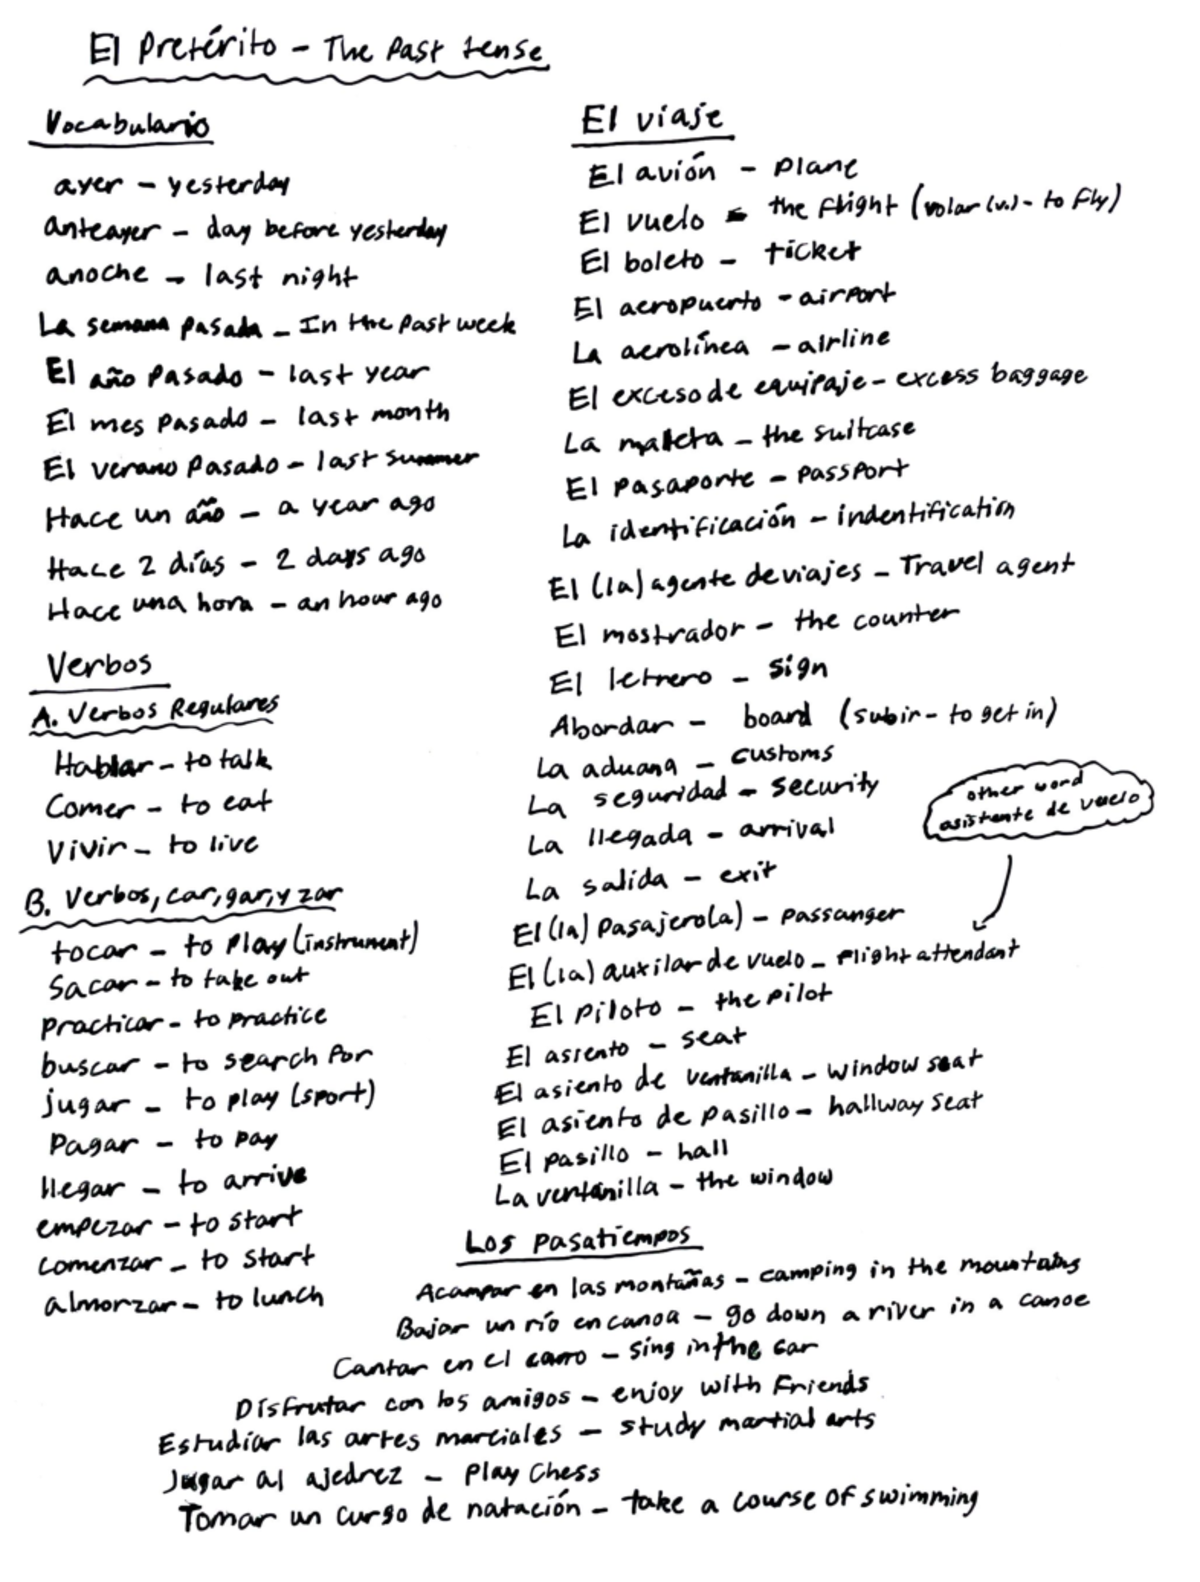 El Pretérito - The Past tense
Vocabulario
ayer - yesterday
anteayer - day before yesterday
anoche - last night
La semana pasada - In the past week
El año pasado - last year
El mes pasado - last month
El verano pasado - last summer
Hace un año - a year ago
Hace 2 días - 2 days ago
Hace una hora - an hour ago
Verbos
A. Verbos Regulares
Hablar - to talk
Comer - to eat
Vivir - to live
B. Verbos, car, gar, y zar
tocar - to play (instrument)
Sacar - to take out
practicar - to practice
buscar - to search for
jugar - to play (sport)
Pagar - to pay
llegar - to arrive
empezar - to start
comenzar - to start
almorzar - to lunch
El viaje
El avión - plane
El vuelo - the flight (volar (v.) - to fly)
El boleto - ticket
El aeropuerto - airport
La aerolínea - airline
El exceso de equipaje - excess baggage
La maleta - the suitcase
El pasaporte - passport
La identificación - indentification
El (la) agente de viajes - Travel agent
El mostrador - the counter
El letrero - sign
Abordar - board (subir - to get in)
La aduana - customs
La seguridad - security
La llegada - arrival
La salida - exit
El (la) pasajero(a) - passanger
other word
asistente de vuelo
El (la) auxilar de vuelo - flight attendant
El piloto - the pilot
El asiento - seat
El asiento de ventanilla - window seat
El asiento de pasillo - hallway seat
El pasillo - hall
La ventanilla - the window
Los pasatiempos
Acampar en las montañas - camping in the mountains
Bajar un río en canoa - go down a river in a canoe
Cantar en el carro - sing in the car
Disfrutar con los amigos - enjoy with friends
Estudiar las artes marciales - study martial arts
Jugar al ajedrez - Play Chess
Tomar un curso de natación - take a course of swimming